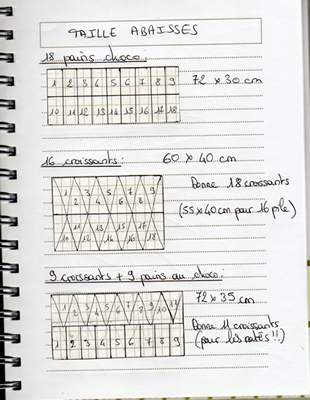 TAILLE ABAISSES
18 pains choco:
1 2 3 4 5 6 7 8 9
72 x 30 cm
10 11 12 13 14 15 16 17 18
16 croissants:
60 x 40 cm
1 3 5 7 9
2 4 6 8
Donne 18 croissants
(55x40cm pour 16 pile)
11 13 15 17
10 12 14 16 18
9 croissants + 9 pains au choco:
72 x 35 cm
1 2 3 4 5 6 7 8 9 10 11
Donne 11 croissants
(pour les ratés!!)
1 2 3 4 5 6 7 8 9